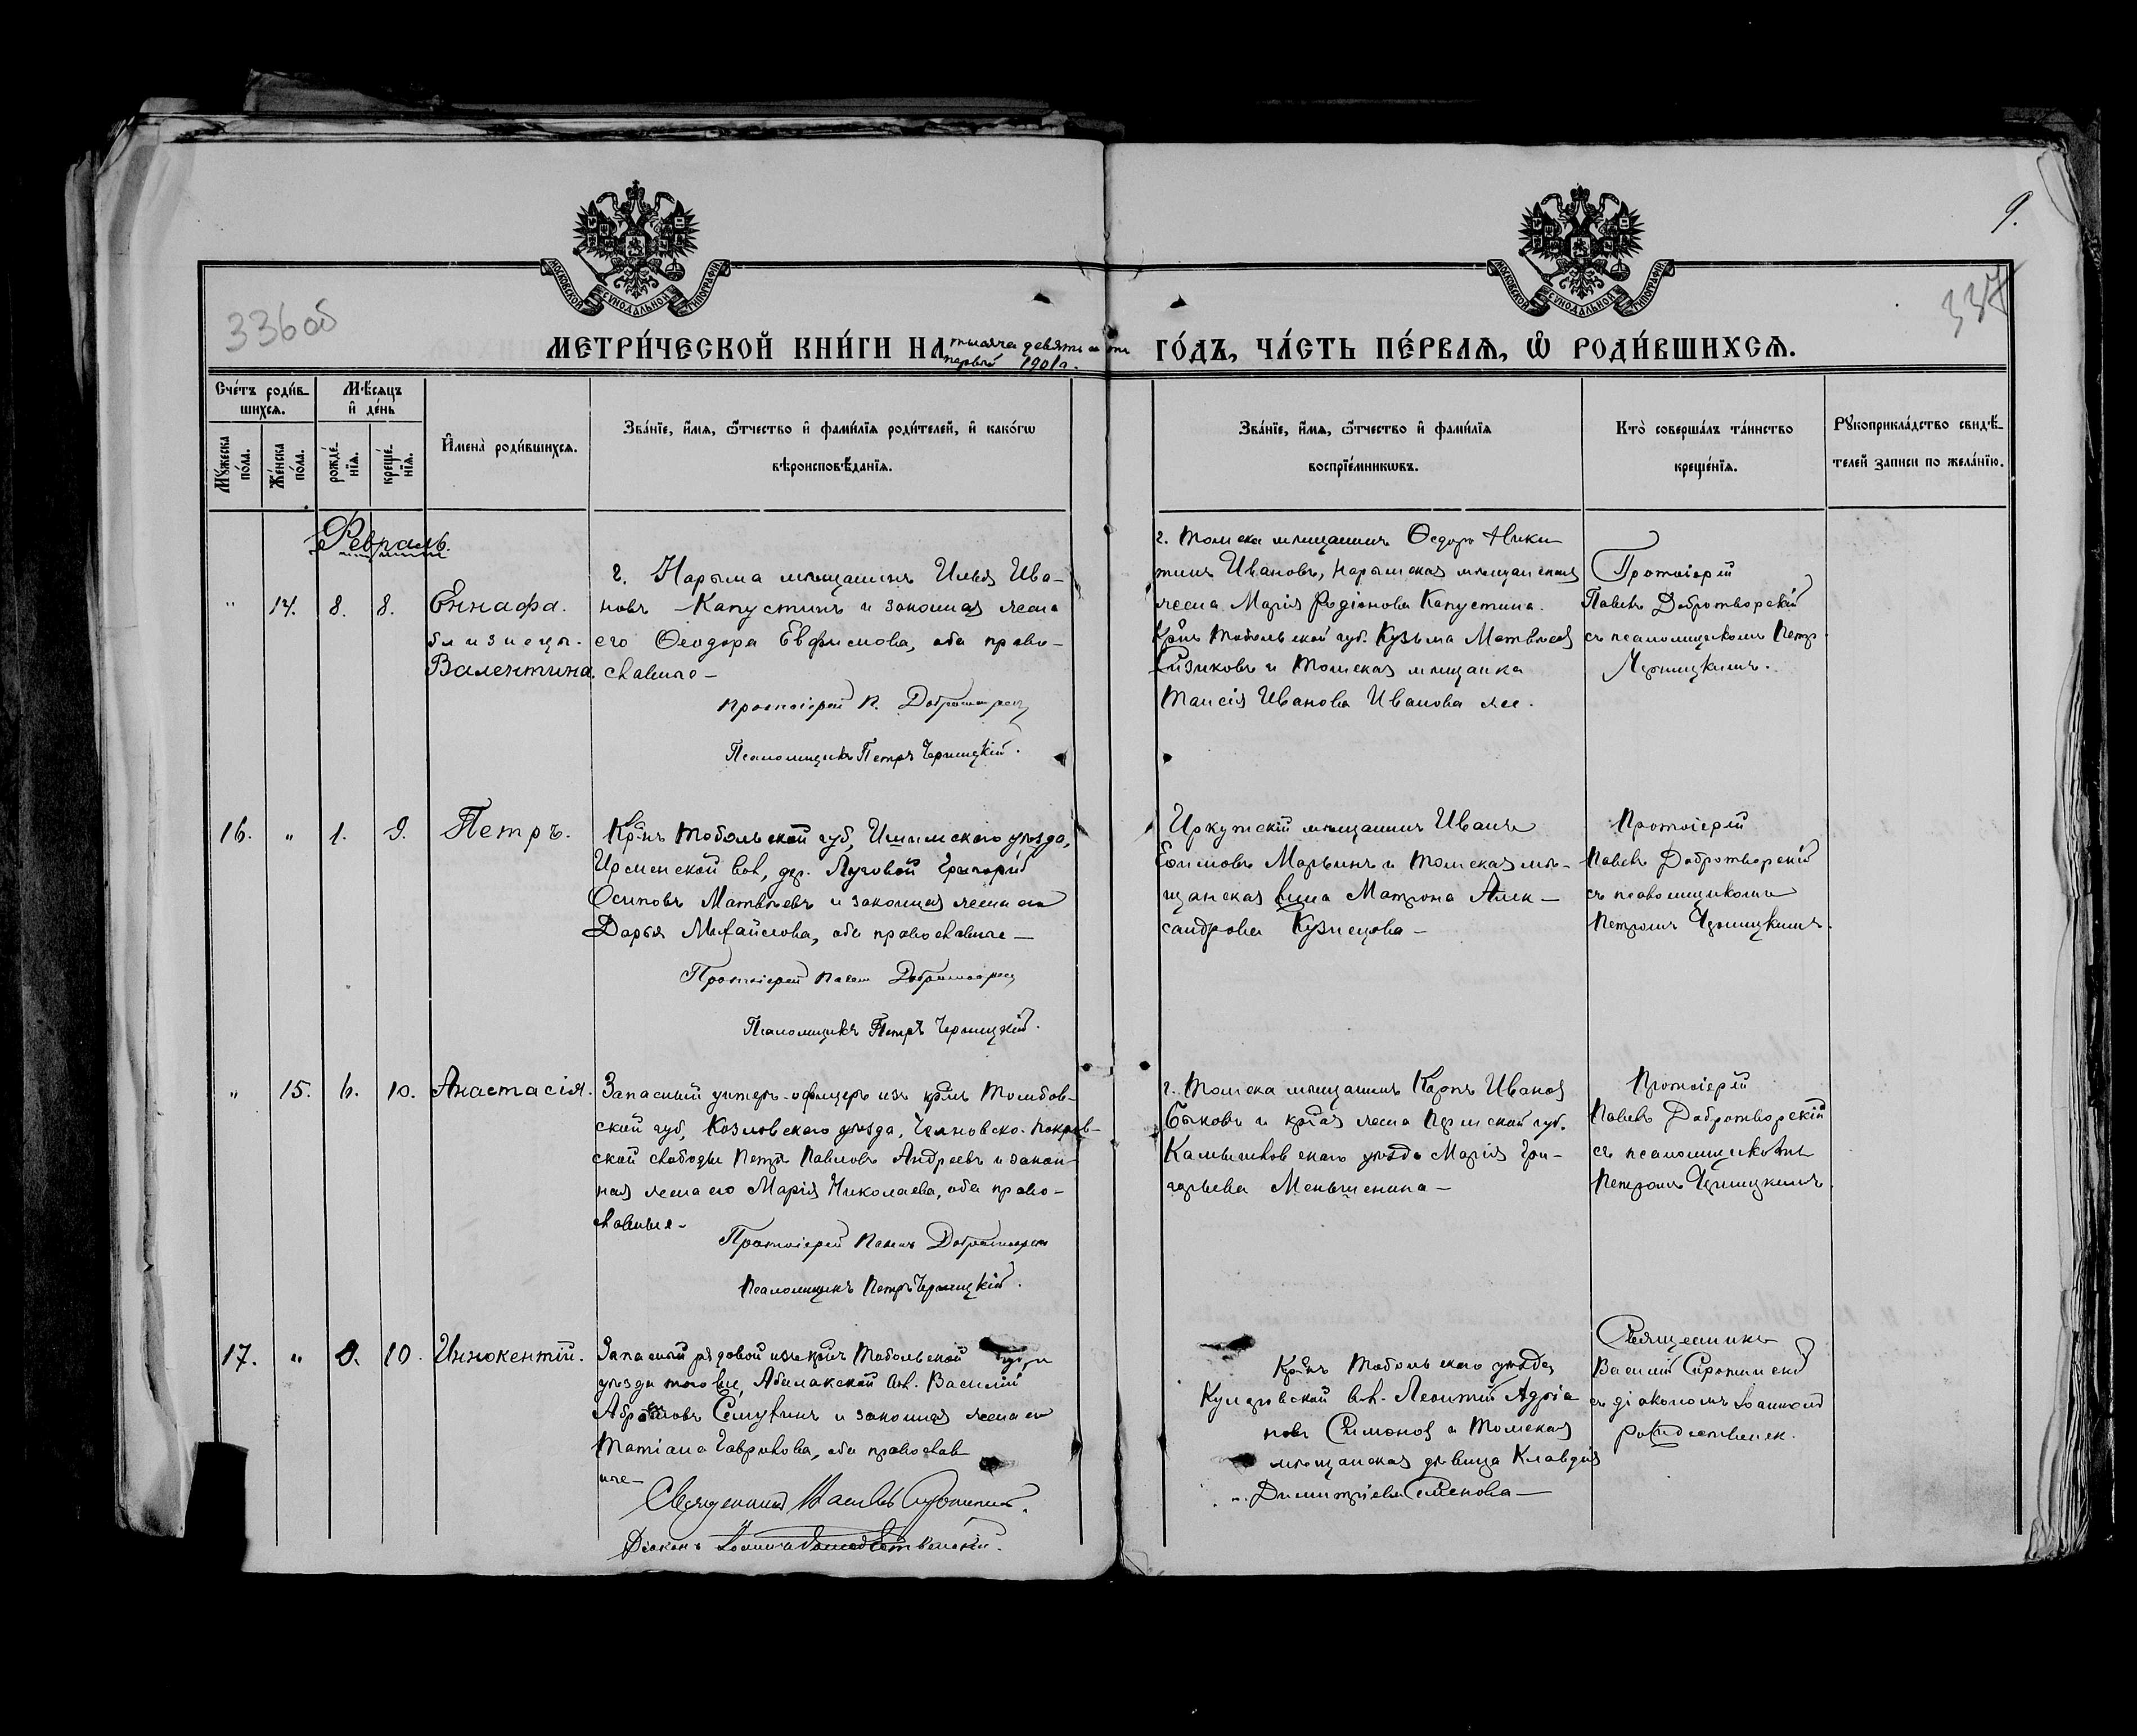 9.
336 об
337
МОСКОВСКОЙ СѴНОДАЛЬНОЙ ТИПОГРАФІИ
МОСКОВСКОЙ СѴНОДАЛЬНОЙ ТИПОГРАФІИ
МЕТРИ́ЧЕСКОЙ КНИ́ГИ НА тысяча девятьсотъ первый 1901 г. ГО́ДЪ, ЧА́СТЬ ПЕ́РВАѦ, Ѽ РОДИ́ВШИХСѦ.
Сче́тъ роди́вшихсѧ.
Мѣ́сяцъ и де́нь
Мꙋжеска по́ла.
Же́нска по́ла.
рожде́нїѧ.
креще́нїѧ.
И҆мена̀ роди́вшихсѧ.
Зва́нїе, и҆́мѧ, ѻ҆́тчество и҆ фами́лїѧ роди́телей, и҆ како́гѡ
вѣроисповѣ́данїѧ.
Зва́нїе, и҆́мѧ, ѻ҆́тчество и҆ фами́лїѧ
воспрїе́мникѡвъ.
Кто̀ соверша́лъ та́инство
креще́нїѧ.
Рꙋкоприкла́дство свидѣ́-
телей записи по жела́нїю.
Февраль.
" 14. 8. 8.
Еннафа.
близнецы.
Валентина.
г. Нарыма мѣщанинъ Илья Ива-
новъ Капустинъ и законная жена
его Ѳеодора Евфимова, оба право-
славные –
Протоіерей П. Добротворскій
Псаломщикъ Петръ Черницкій.
г. Томска мѣщанинъ Ѳедоръ Ники
тинъ Ивановъ, Нарымская мѣщанская
жена Марія Родіонова Капустина.
Крнъ Тобольской губ. Кузьма Матвѣевъ
и Томская мѣщанка
Таисія Иванова Иванова же.
Протоіерей
Павелъ Добротворскій
съ псаломщикомъ Петр.
Черницкимъ.
16. " 1. 9.
Петръ.
Кр-нъ Тобольской губ, Ишимскаго уѣзда,
вол, дер. Луговой Григорій
Осиповъ Матвѣевъ и законная жена его
Дарья Михайлова, оба православные –
Протоіерей Павелъ Добротворскій
Псаломщикъ Петръ Черницкій.
Иркутскій мѣщанинъ Иванъ
Ефимовъ Марьинъ и Томская мѣ-
щанская Матрона Алек-
сандрова Кузнецова –
Протоіерей
Павелъ Добротворскій
съ псаломщикомъ
Петромъ Черницкимъ.
" 15. 6. 10.
Анастасія.
Запасный унтеръ-офицеръ изъ крнъ Тамбов-
ской губ, Козловскаго уѣзда, Челновско-Покров-
ской слободы Петръ Павловъ Андреевъ и закон-
ная жена его Марія Николаева, оба право-
славные –
Протоіерей Павелъ Добротворскій
Псаломщикъ Петръ Черницкій.
г. Томска мѣщанинъ Карпъ Ивановъ
Быковъ и кр-ая жена Пермской губ.
Камышловскаго уѣзда Марія Гри-
горьева Меньшенина –
Протоіерей
Павелъ Добротворскій
съ псаломщикомъ
Петромъ Черницкимъ.
17. " 9. 10.
Иннокентій.
Запасный рядовой изъ крнъ Тобольской губ. и
уѣзда того же, Абалакской вол. Василій
и законная жена его
Татіана Гаврилова, оба православ
ные –
Священникъ Василій Сиротинскій.
Діаконъ Іоаннъ Рождественскій.
Кр-нъ Тобольскаго уѣзда,
вол. Леонтій Адріа
новъ и Томская
мѣщанская дѣвица Клавдія
Димитріева Семенова –
Священникъ
Василій Сиротинскій
съ діакономъ Іоанномъ
Рождественск.